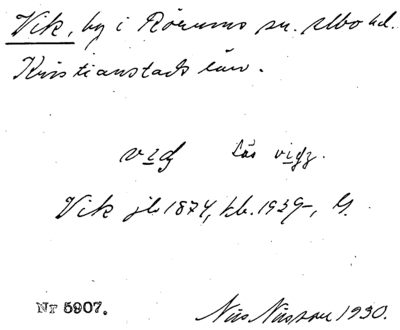 Vik, by i Rörums sn. Albo hd.
Kristianstads län.
vig läs vigz.
Vik jb 1874, kb. 1939-, G.
Nr 5907. Nils Nilsson 1930.